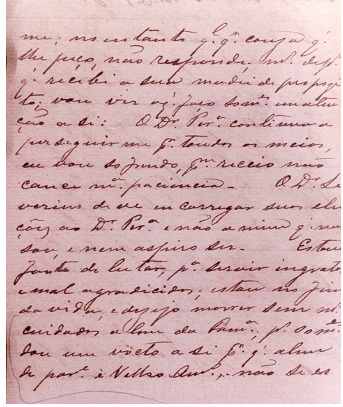 me; no entanto q.q.r couza q.
lhe peço, não responde, m.to desp.
q. recibi a sua mudei de propozi
to, vou vir aq.i faço som.te em aten
ção a si: O D.r Per.a continua a
perseguir me p.r toudos os meios,
eu vou sofrendo, q.m receio não
cance m.a paciencia _ O D.r Se
verino deve encarregar suas elei
ções ao D.r Per.a e não a mim q. não
sou, e nem aspiro ser _ Estou
farto de lutar, p.a servir ingratos
e mal agradicidos, estou no fim
da vida, e dezejo morrer sem
cuidados a bem da Fam.a, p.s som.te
dou um vócto a si p.r q. alem
de par.e é Velho Am.o, não se es